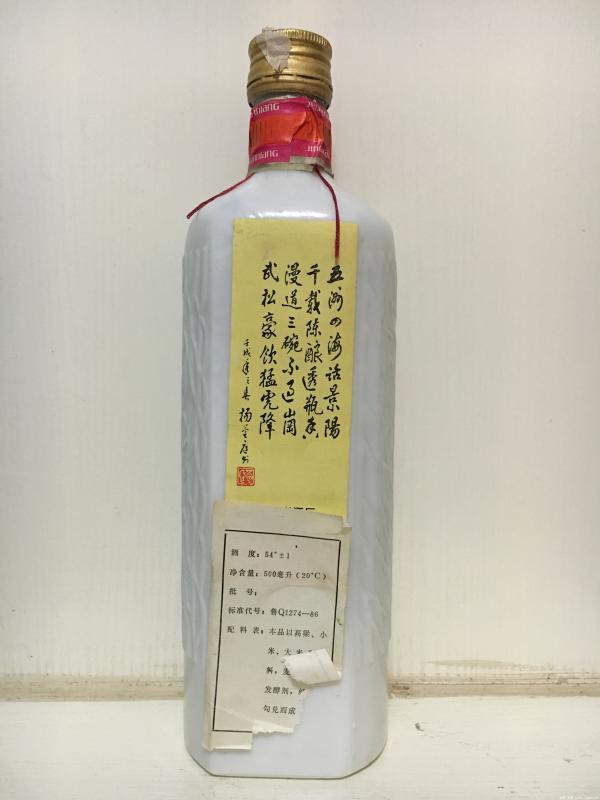 niang
JING
niang
五洲四海话景陽
千载陈酿透瓶香
漫道三碗不过崗
武松豪饮猛虎降
壬戌年之春 杨萱庭书
酒 度：54°±1
净含量：500毫升（20°C）
批 号：
标准代号：鲁Q1274—86
配 料 表：本品以高粱、小
米、大米
发酵剂，
勾兑而成